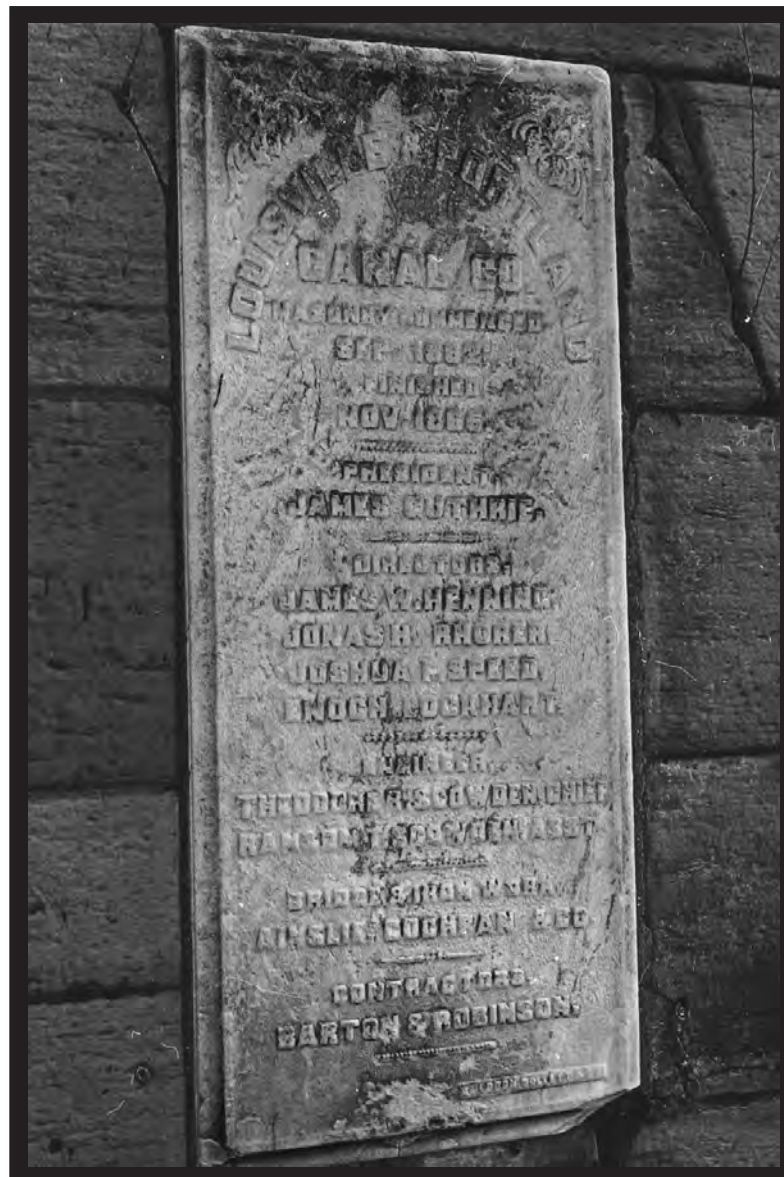 LOUISVILLE & PORTLAND
CANAL CO.
MASONRY COMMENCED
SEP.
FINISHED
NOV. 1866.
PRESIDENT,
JAMES GUTHRIE.
DIRECTORS,
JAMES W. HENNING.
JONAS H. RHORER.
JOSHUA F. SPEED.
ENOCH LOCKHART.
ENGINEER.
THEODORE R. SCOWDEN CHIEF
SCOWDEN ASST.
BRIDGE & IRON WORK.
AINSLIE, COCHRAN & CO.
CONTRACTORS.
BARTON & ROBINSON.